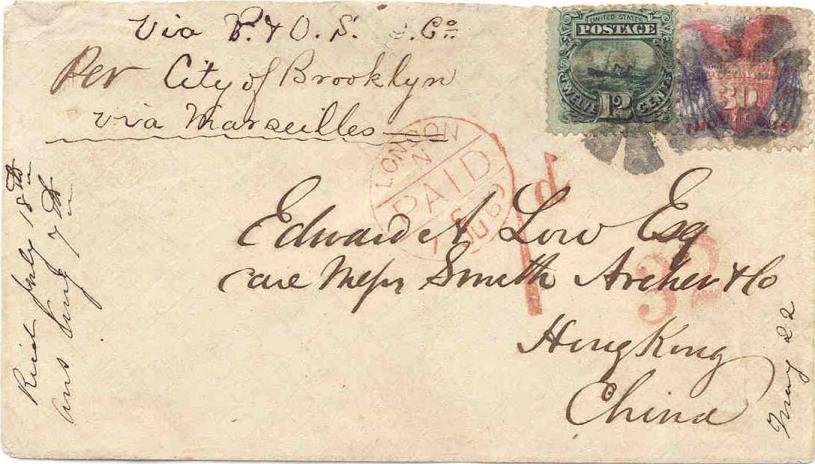 Via P. & O. S. S. Co.
Per City of Brooklyn
via Marseilles
UNITED STATES
POSTAGE
TWELVE 12 CENTS
30
LONDON
PAID
JU 69
1d
32
Edward A Low Esq
care Messrs Smith Archer & Co
Hong Kong
China
Recd July 18th
ans Aug 7th
May 22